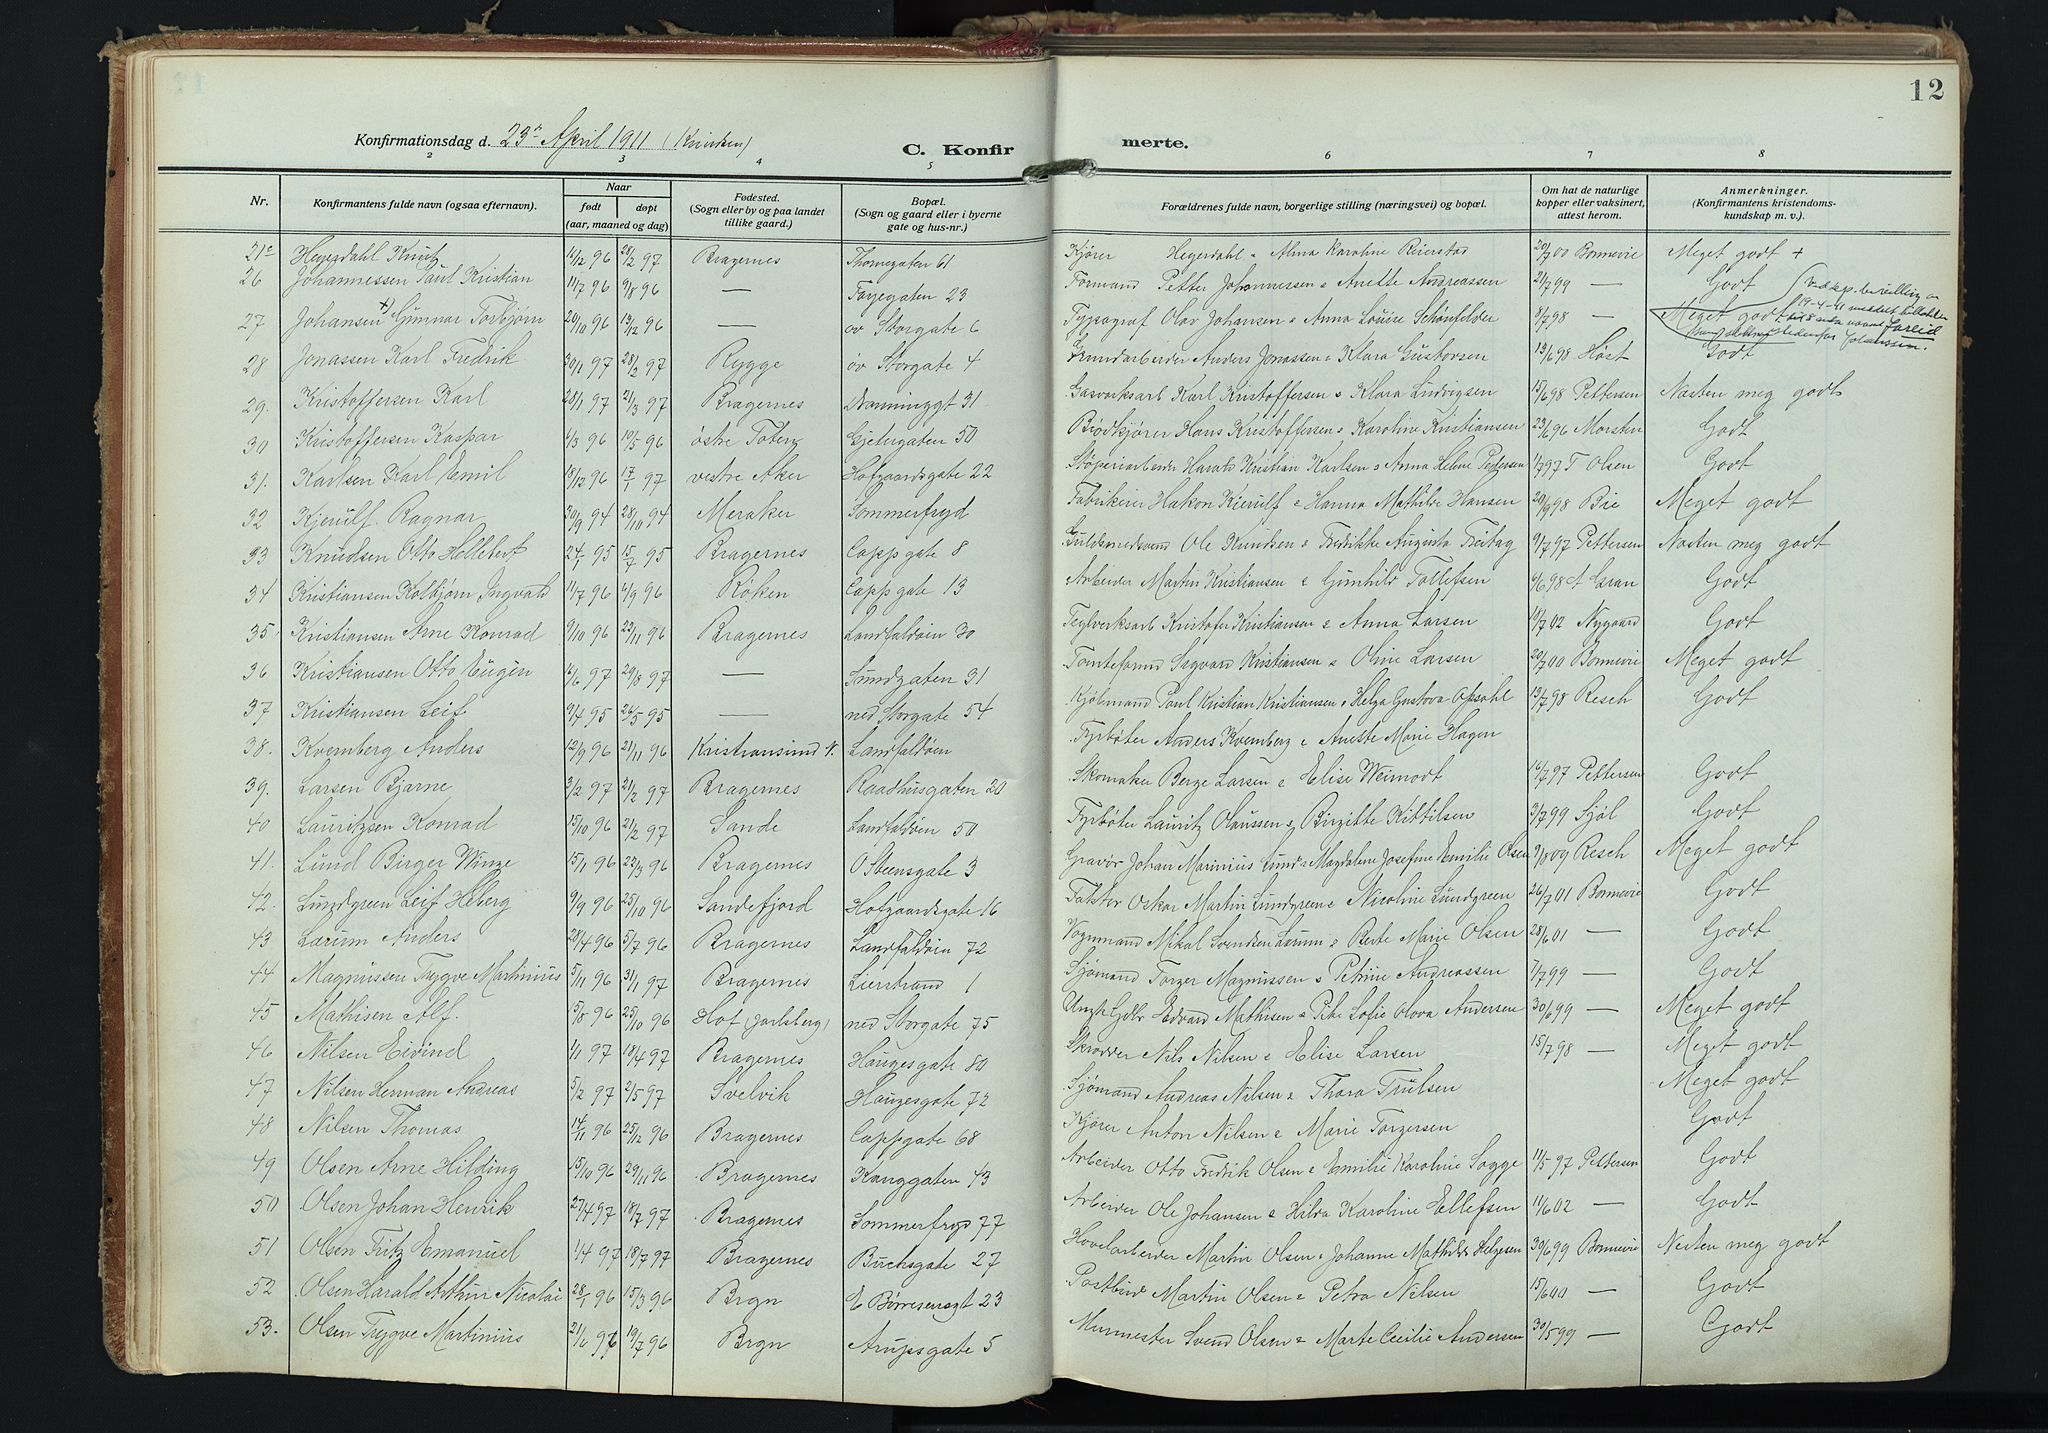 12
Konfirmationsdag d. 23de April 1911 (Kirken)
C. Konfirmerte.
2 3 4 5 6 7 8
Nr. Konfirmantens fulde navn (ogsaa efternavn). Naar født døpt (aar, maaned og dag) Fødested. (Sogn eller by og paa landet tillike gaard.) Bopæl. (Sogn og gaard eller i byerne gate og hus-nr.) Forældrenes fulde navn, borgerlige stilling (næringsvei) og bopæl. Om hat de naturlige kopper eller vaksinert, attest herom. Anmerkninger. (Konfirmantens kristendomskundskap m. v.).
Hegerdahl Knut 16/12 96 28/2 97 Bragernes Thornegaten 61 Kjører Hegerdahl & Alma Karoline Reierstad 20/7 00 Bonnevie Meget godt +
26 Johannessen Paul Kristian 11/7 96 9/8 96 — Togegaten 23 Formand Petter Johannessen & Anette Andreassen 21/7 99 — Godt
27 Johansen +) Gunnar Torbjørn 20/10 96 13/12 96 — øv Storgate 6 Typograf Olav Johansen & Anna Louise Schønfelder 8/7 98 — Meget godt
28 Jonassen Karl Fredrik 30/1 97 28/2 97 Rygge øv Storgate 4 Grundarbeider Anders Jonassen & Klara Gustavsen 13/6 98 Høst Godt
29. Kristoffersen Karl 28/1 97 21/3 97 Bragernes Dronninggt 31 Gasverksarb Karl Kristoffersen & Klara Ludvigsen 15/6 98 Pettersen Næsten meg godt
30 Kristoffersen Kaspar 4/3 96 10/5 96 østre Toten Gjetergaten 50 Brødkjører Hans Kristoffersen & Karoline Kristiansen 23/6 96 Morsten Godt
31. Karlsen Karl Emil 18/12 96 17/1 97 vestre Aker Hofgaardsgate 22 Støperiarbeider Harald Kristian Karlsen & Anna Helene Pedersen 1/7 97 T Olsen Godt
32 Kjerulf Ragnar 30/9 94 28/10 94 Meraker Sommerfryd Fabrikeier Hakon Kierulf & Hanna Mathilde Hansen 20/9 98 Bie Meget godt
33 Knudsen Otto Hellebert 24/5 95 15/7 95 Bragernes Cappsgate 8 Guldsmedsvend Ole Knudsen & Fredrikke Augusta Freitag 9/7 97 Pettersen Næsten meg godt
34 Kristiansen Kolbjørn Ingvald 11/7 96 6/9 96 Røken Cappsgate 13 Arbeider Martin Kristiansen & Gunhild Tollefsen 6/6 98 A Gran Godt
35 Kristiansen Arne Konrad 9/10 96 22/11 96 Bragernes Landfaldøien 30 Teglverksarb Kristofer Kristiansen & Anna Larsen 18/7 02 Nygaard Godt
36 Kristiansen Otto Eugen 6/6 97 29/8 97 — Sundgaten 31 Tomteformd Sigvard Kristiansen & Oline Larsen 20/7 00 Bonnevie Meget godt
37 Kristiansen Leif 9/4 95 26/5 95 — ned Storgate 54 Kjølmand Paul Kristian Kristiansen & Helga Gustava Opsahl 13/7 98 Resch Godt
38. Kvernberg Anders 12/9 96 21/11 96 Kristiansund N. Landfaldøien Fyrbøter Anders Kvernberg & Anette Marie Hagen
39. Larsen Bjarne 3/2 97 21/2 97 Bragernes Raadhusgaten 20 Skomaker Berge Larsen & Elise Weimodt 16/7 97 Pettersen Godt
40 Lauritzsen Konrad 15/10 96 21/2 97 Sande Landfaldøien 50 Fyrbøter Lauritz Olaussen & Birgitte Kittilsen 3/7 99 Sjøl Godt
41. Lund Birger Winge 15/1 96 22/3 96 Bragernes O Steensgate 3 Gravør Johan Marinius Lund & Magdalene Josefine Emilie Olsen 7/8 09 Resch Meget godt
42. Lundgreen Leif Heberg 9/9 96 25/10 96 Sandefjord Hofgaardsgate 16 Faktor Oskar Martin Lundgreen & Nicoline Lundgreen 26/7 01 Bonnevie Godt
43 Lærum Anders 28/4 96 5/7 96 Bragernes Landfaldøien 72 Vognmand Mikal Svendsen Lærum & Berte Marie Olsen 28/6 01 — Godt
44 Magnussen Trygve Martinius 5/11 96 31/1 97 Bragernes Lierstrand 1 Sjømand Torger Magnussen & Petrine Andreassen 7/7 99 — Godt
45 Mathisen Alf. 15/8 96 25/10 96 Hof (Jarlsberg) ned Storgate 75 Edvard Mathisen & Pike Sofie Olava Andersen 30/6 99 — Meget godt
46 Nilsen Eivind 1/1 97 18/4 97 Bragernes Haugesgate 80 Skrædder Nils Nilsen & Elise Larsen 15/7 98 — Meget godt
47 Nilsen Herman Andreas 5/2 97 2/5 97 Svelvik Haugesgate 72 Sjømand Andreas Nilsen & Thora Trulsen Meget godt
48 Nilsen Thomas 14/11 96 25/12 96 Bragernes Cappsgate 68 Kjører Anton Nilsen & Marie Torgersen Godt
49 Olsen Arne Hilding 15/10 96 29/11 96 Bragernes Konggaten 43 Arbeider Otto Fredrik Olsen & Emilie Karoline Sogge 11/5 97 Pettersen Godt
50 Olsen Johan Henrik 27/4 97 18/7 97 Bragernes Sommerfryd 77 Arbeider Ole Johansen & Hilda Karoline Ellefsen 11/6 02 — Godt
51 Olsen Fritz Emanuel 1/4 97 18/7 97 Bragernes Buchsgate 27 Høvelarbeider Martin Olsen & Johanne Mathilde Helgesen 30/6 99 Bonnevie Nesten meg godt
52 Olsen Harald Arthur Nicolai 28/1 96 15/3 96 Brgn E Børresensgt 23 Postbud Martin Olsen & Petra Nilsen 15/6 00 — Godt
53. Olsen Trygve Martinius 21/6 96 19/7 96 Brgn Arupsgate 5 Murmester Svend Olsen & Marte Cecilie Andersen 30/5 99 — Godt